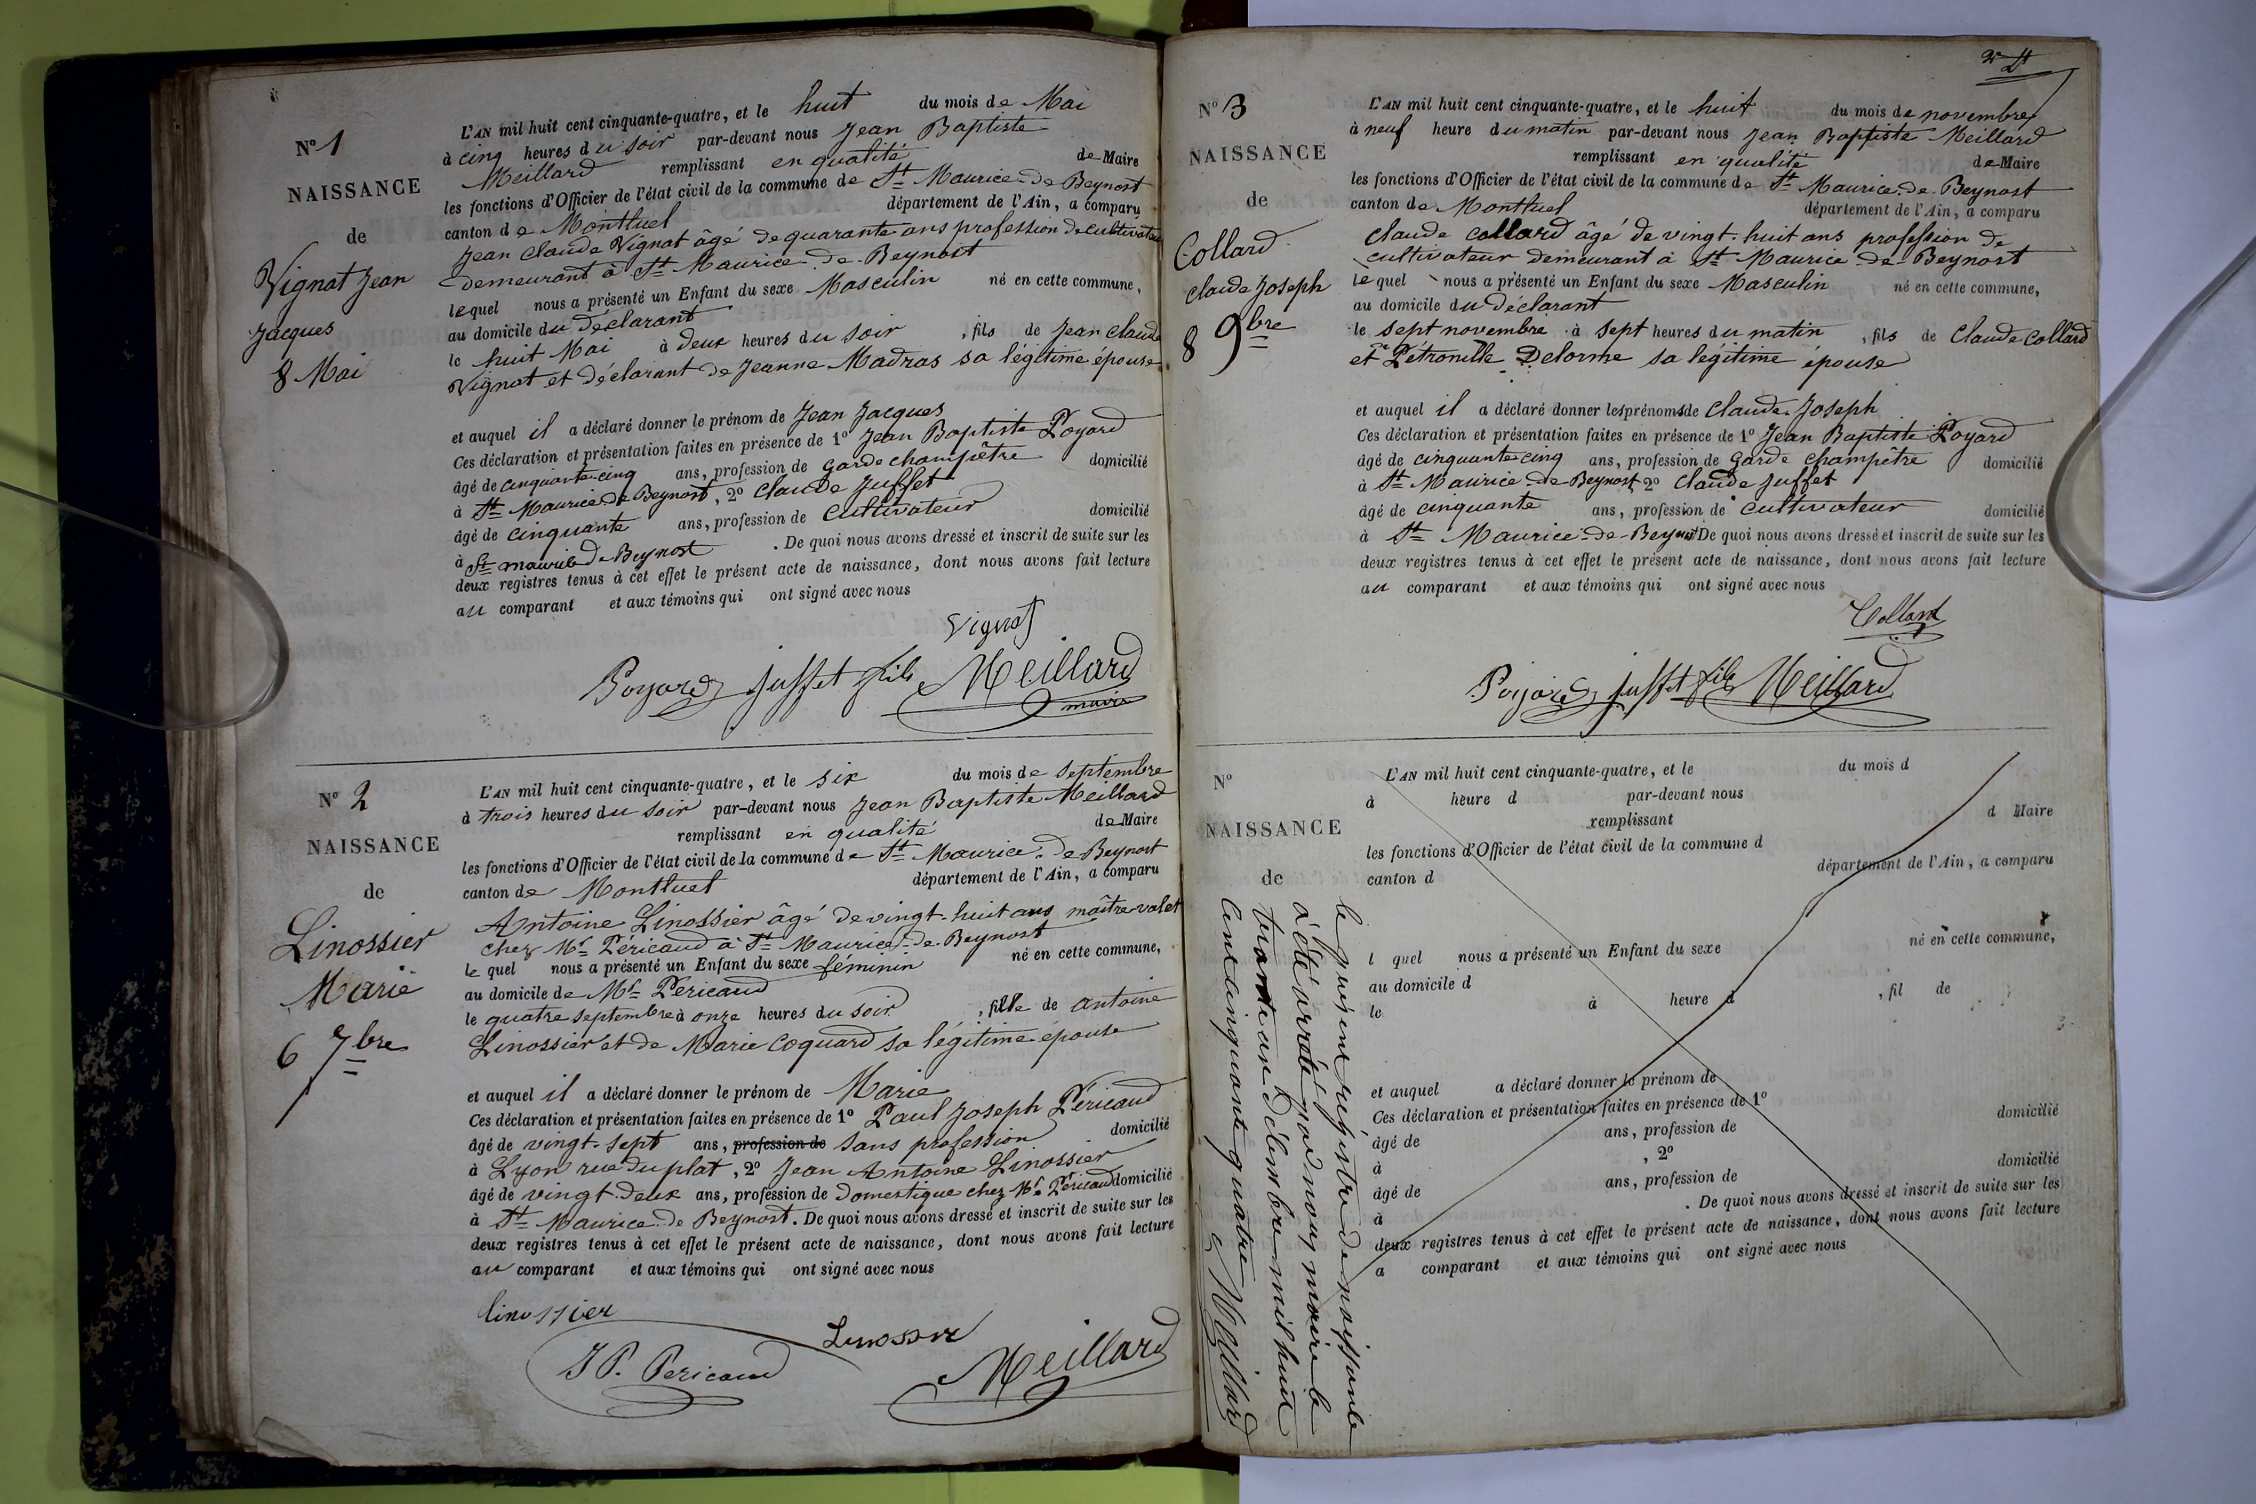 Nº 1
NAISSANCE
de
Vignat Jean
Jacques
8 Mai
L'AN mil huit cent cinquante-quatre, et le huit du mois de Mai
à cinq heures du soir par-devant nous Jean Baptiste
Meillard remplissant en qualité de Maire
les fonctions d'Officier de l'état civil de la commune de St Maurice-de-Beynost
canton de Montluel département de l'Ain, a comparu
Jean Claude Vignat âgé de quarante ans profession de cultivateur
demeurant à St Maurice-de-Beynost
lequel nous a présenté un Enfant du sexe Masculin né en cette commune,
au domicile du déclarant
le huit Mai à deux heures du soir, fils de Jean Claude
Vignat et déclarant de Jeanne Madras sa légitime épouse
et auquel il a déclaré donner le prénom de Jean Jacques
Ces déclaration et présentation faites en présence de 1º Jean Baptiste Poyard
âgé de cinquante-cinq ans, profession de Garde champêtre domicilié
à St Maurice-de-Beynost, 2º Claude Juffet
âgé de cinquante ans, profession de cultivateur domicilié
à St maurice de Beynost. De quoi nous avons dressé et inscrit de suite sur les
deux registres tenus à cet effet le présent acte de naissance, dont nous avons fait lecture
au comparant et aux témoins qui ont signé avec nous
Vignat
Poyard Juffet fils Meillard
maire
Nº 2
NAISSANCE
de
Linossier
Marie
6 7bre
L'AN mil huit cent cinquante-quatre, et le six du mois de septembre
à trois heures du soir par-devant nous Jean Baptiste Meillard
remplissant en qualité de Maire
les fonctions d'Officier de l'état civil de la commune de St Maurice-de Beynost
canton de Montluel département de l'Ain, a comparu
Antoine Linossier âgé de vingt-huit ans maître-valet
chez Mr Péricaud à St Maurice-de-Beynost
le quel nous a présenté un Enfant du sexe féminin né en cette commune,
au domicile de Mr Péricaud
le quatre septembre à onze heures du soir, fille de antoine
Linossier et de Marie Coquard sa légitime épouse
et auquel il a déclaré donner le prénom de Marie
Ces déclaration et présentation faites en présence de 1º Paul Joseph Péricaud
âgé de vingt-sept ans, profession de sans profession domicilié
à Lyon rue du plat, 2º Jean Antoine Linossier
âgé de vingt-deux ans, profession de domestique chez Mr Péricaud domicilié
à St Maurice-de Beynost. De quoi nous avons dressé et inscrit de suite sur les
deux registres tenus à cet effet le présent acte de naissance, dont nous avons fait lecture
au comparant et aux témoins qui ont signé avec nous
linossier
Linossier
J P. Pericaud Meillard
Nº 3
NAISSANCE
de
Collard
Claude Joseph
8 9bre
L'AN mil huit cent cinquante-quatre, et le huit du mois de novembre
à neuf heure du matin par-devant nous Jean Baptiste Meillard
remplissant en qualité de Maire
les fonctions d'Officier de l'état civil de la commune de St Maurice-de-Beynost
canton de Montluel département de l'Ain, a comparu
Claude Collard âgé de vingt-huit ans profession de
cultivateur demeurant à St Maurice-de-Beynost
le quel nous a présenté un Enfant du sexe Masculin né en cette commune,
au domicile du déclarant
le sept novembre à sept heures du matin, fils de Claude Collard
et Pétronille Delorme sa légitime épouse
et auquel il a déclaré donner les prénoms de Claude-Joseph
Ces déclaration et présentation faites en présence de 1º Jean Baptiste Poyard
âgé de cinquante cinq ans, profession de Garde champêtre domicilié
à St Maurice-de-Beynost, 2º Claude Juffet
âgé de cinquante ans, profession de cultivateur domicilié
à St Maurice-de-Beynost De quoi nous avons dressé et inscrit de suite sur les
deux registres tenus à cet effet le présent acte de naissance, dont nous avons fait lecture
au comparant et aux témoins qui ont signé avec nous
Collard
Poyard Juffet fils Meillard
Nº
NAISSANCE
de
L'AN mil huit cent cinquante-quatre, et le du mois d
à heure d par-devant nous
remplissant d Maire
les fonctions d'Officier de l'état civil de la commune d
canton d département de l'Ain, a comparu
l quel nous a présenté un Enfant du sexe né en cette commune,
au domicile d
le à heure d, fil de
et auquel a déclaré donner le prénom de
Ces déclaration et présentation faites en présence de 1º
âgé de ans, profession de domicilié
à, 2º
âgé de ans, profession de domicilié
à. De quoi nous avons dressé et inscrit de suite sur les
deux registres tenus à cet effet le présent acte de naissance, dont nous avons fait lecture
a comparant et aux témoins qui ont signé avec nous
le présent registre de naissance
a été arrêté par nous maire le
trente un décembre mil huit
cent cinquante quatre
Meillard